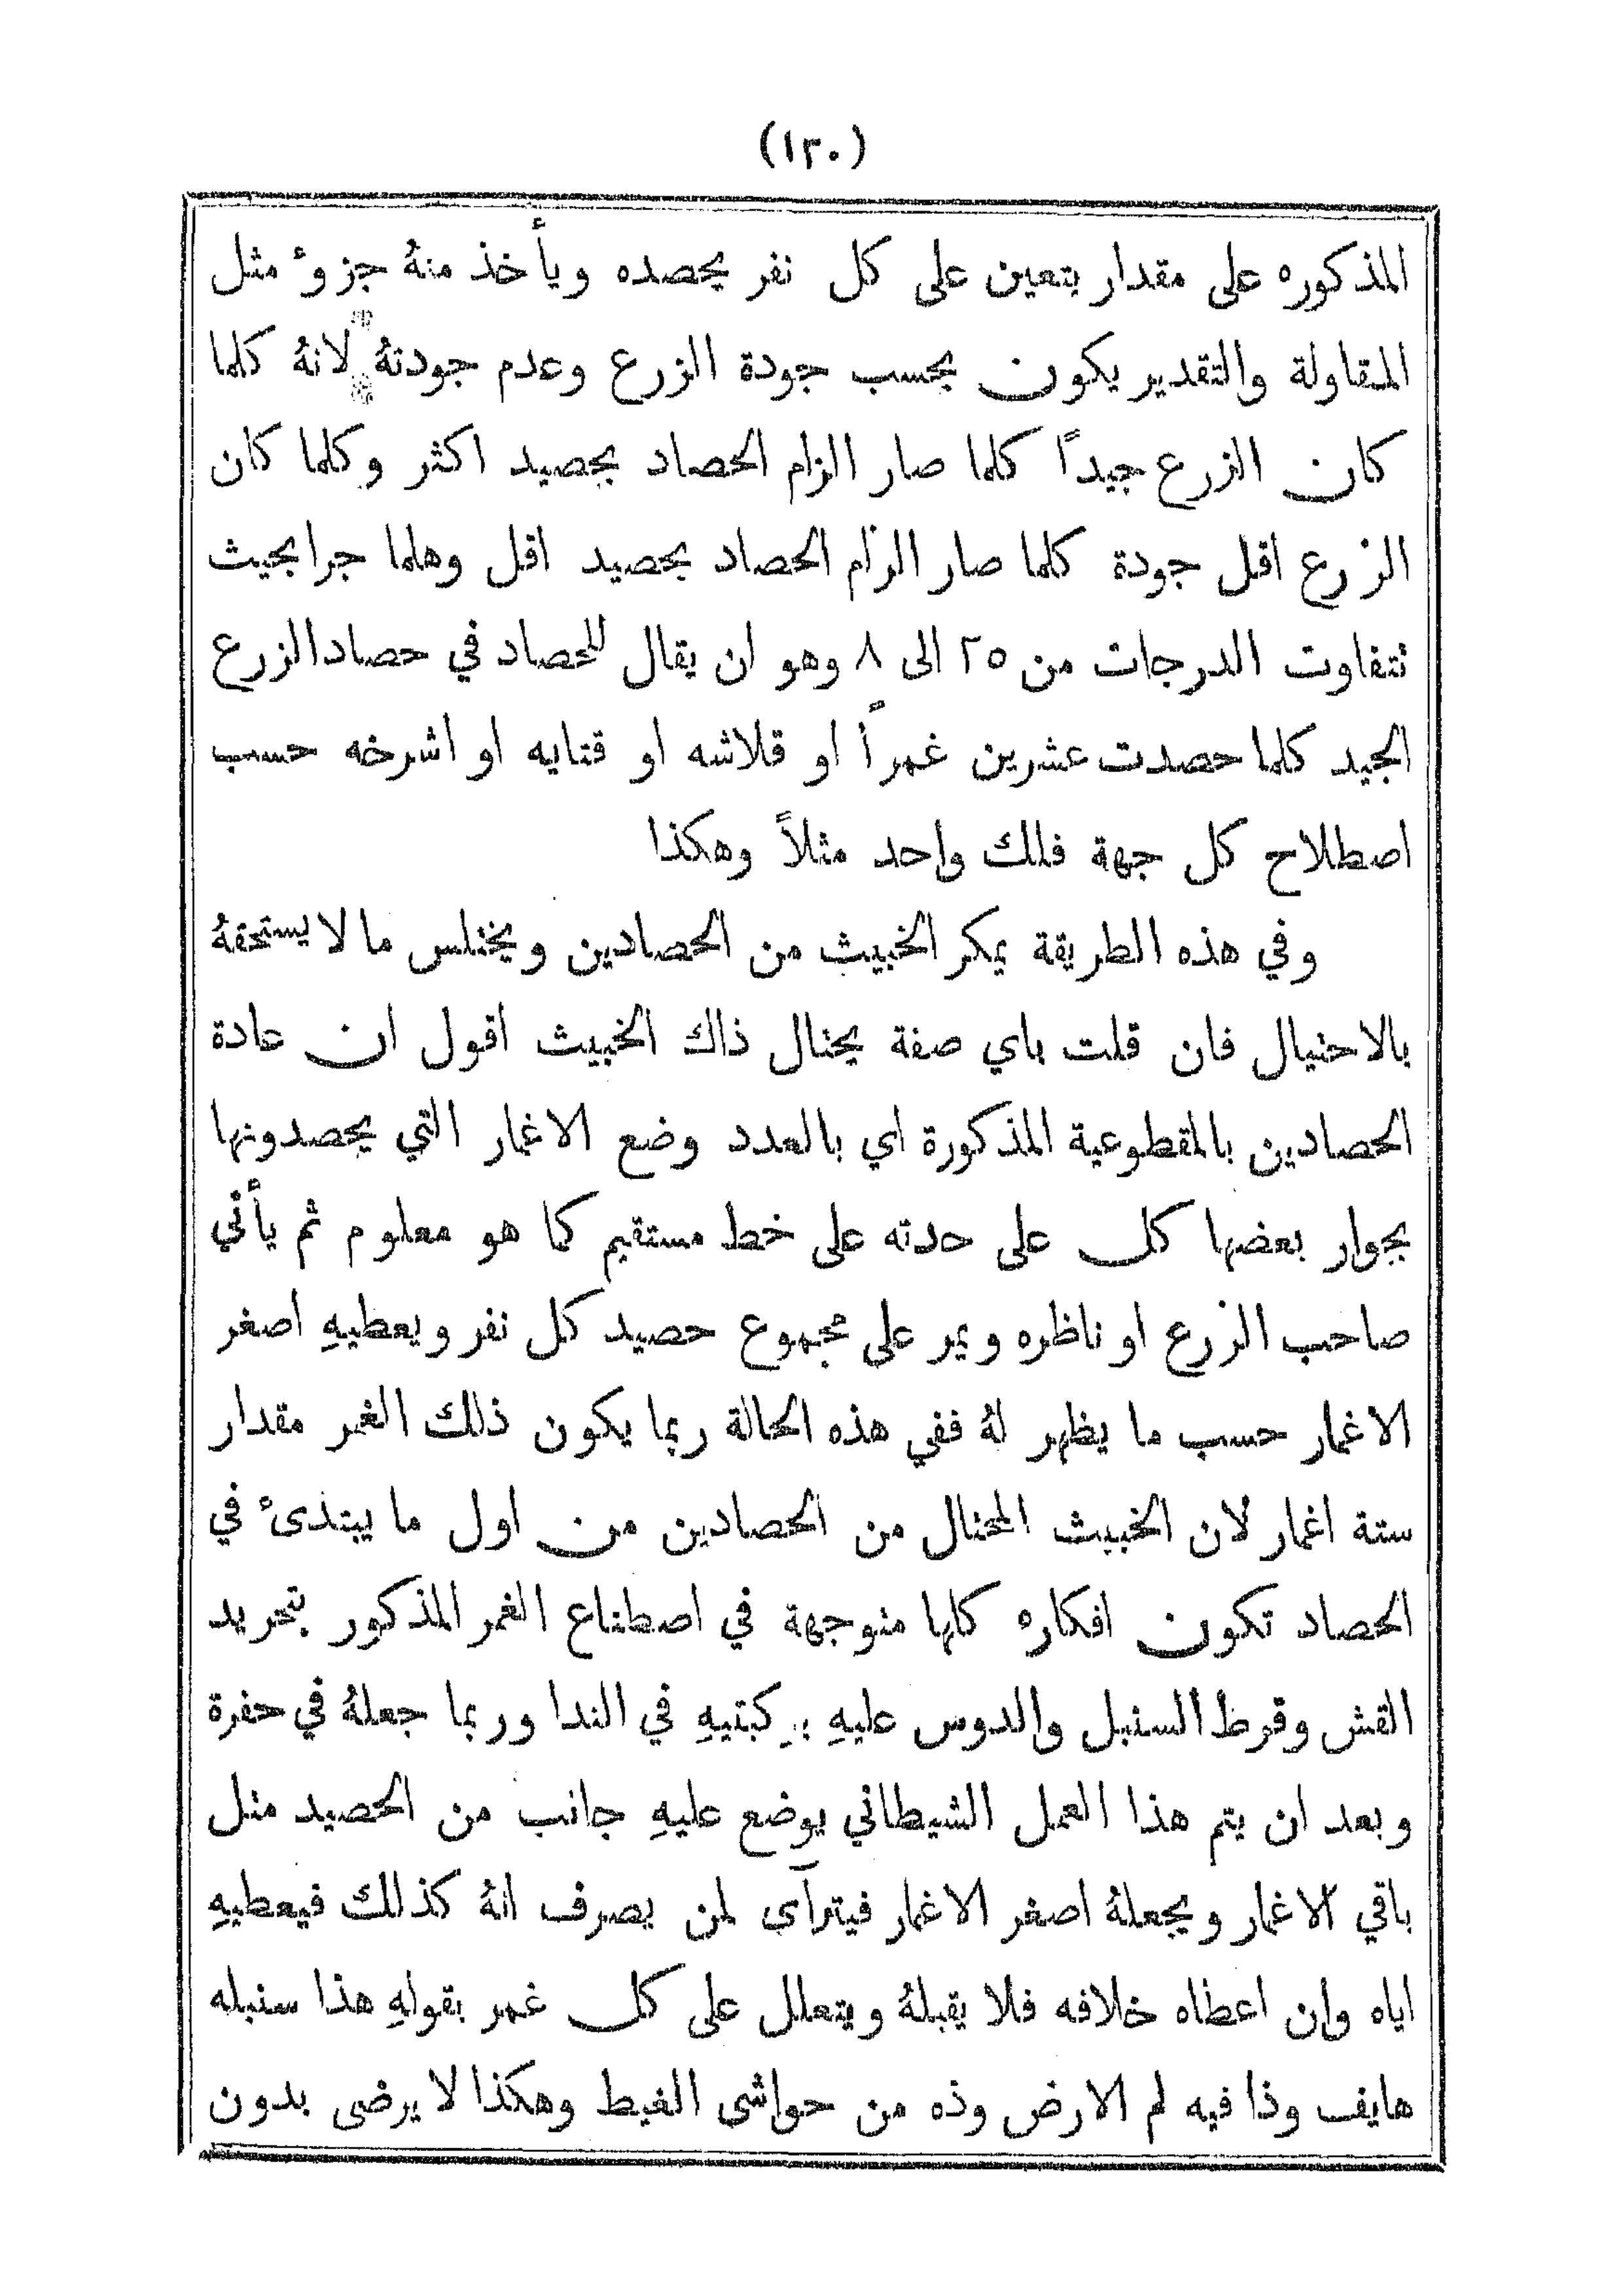 (١٣٠)
المذكوره على مقدار يتعين على كل نفر يحصده ويأخذ منهُ جزوء مثل
المقاولة والتقدير يكون بحسب جودة الزرع وعدم جودتهُ لانهُ كلما
كان الزرع جيداً كلما صار الزام الحصاد بحصيد اكثر وكلما كان
الزرع اقل جودة كلما صار الزام الحصاد بحصيد اقل وهلما جرا بحيث
تتفاوت الدرجات من ٢٥ الى ٨ وهو ان يقال للحصاد في حصاد الزرع
الجيد كلما حصدت عشرين غمراً او قلاشه او قتايه او اشرخه حسب
اصطلاح كل جهة فلك واحد مثلاً وهكذا
وفي هذه الطريقة يمكر الخبيث من الحصادين ويختلس ما لا يستحقهُ
بالاحتيال فان قلت باي صفة يحتال ذاك الخبيث اقول ان عادة
الحصادين بالمقطوعية المذكورة اي بالعدد وضع الاغمار التي يحصدونها
بجوار بعضها كل على حدته على خط مستقيم كما هو معلوم ثم يأتي
صاحب الزرع او ناظره ويمر على مجموع حصيد كل نفر ويعطيهِ اصغر
الاغمار حسب ما يظهر لهُ ففي هذه الحالة ربما يكون ذلك الغمر مقدار
ستة اغمار لان الخبيث المحتال من الحصادين من اول ما يبتدئ في
الحصاد تكون افكاره كلها متوجهة في اصطناع الغمر المذكور بتجريد
القش وقرط السنبل والدوس عليهِ بركبتيهِ في الندا وربما جعلهُ في حفرة
وبعد ان يتم هذا العمل الشيطاني يوضع عليهِ جانب من الحصيد مثل
باقي الاغمار ويجعلهُ اصغر الاغمار فيترآى لمن يصرف انهُ كذلك فيعطيهِ
اياه وان اعطاه خلافه فلا يقبلهُ ويتعلل على كل غمر بقولهِ هذا سنبله
هايف وذا فيه لم الارض وذه من حواشى الغيط وهكذا لا يرضى بدون